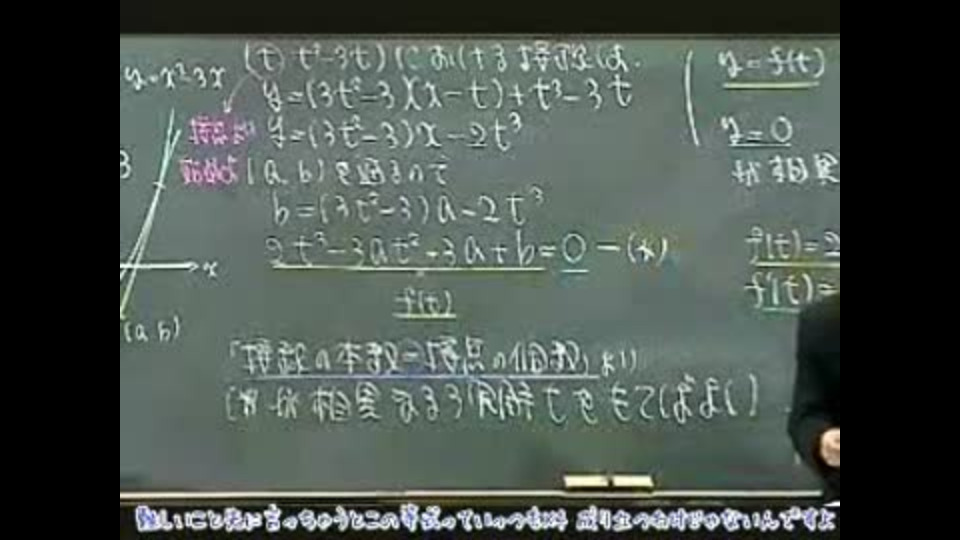 y=x³-3x
(t, t³-3t)における接線は
y=(3t²-3)(x-t)+t³-3t
接点が y=(3t²-3)x-2t³
(a,b)を通るので
b=(3t²-3)a-2t³
2t³-3at²+3a+b=0 -(*)
f(t)
「接線の本数=接点の個数」より
(*)が相異なる3実解tをもてばよい
x
(a,b)
y=f(t)
y=0
が相異
f(t)=2
f'(t)=
難しいこと先に言っちゃうとこの等式っていっつも 成り立つわけじゃないんですよ